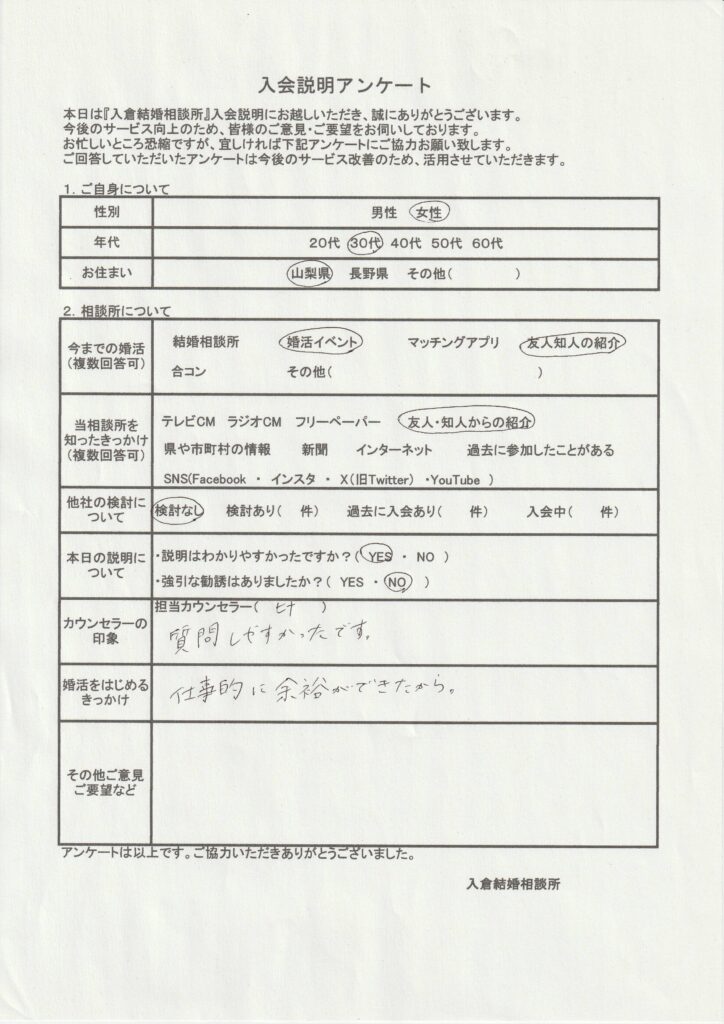 入会説明アンケート
本日は『入倉結婚相談所』入会説明にお越しいただき、誠にありがとうございます。
今後のサービス向上のため、皆様のご意見・ご要望をお伺いしております。
お忙しいところ恐縮ですが、宜しければ下記アンケートにご協力お願い致します。
ご回答していただいたアンケートは今後のサービス改善のため、活用させていただきます。
1. ご自身について
性別 男性 女性
年代 20代 30代 40代 50代 60代
お住まい 山梨県 長野県 その他( )
2. 相談所について
今までの婚活
(複数回答可)
結婚相談所 婚活イベント マッチングアプリ 友人知人の紹介
合コン その他( )
当相談所を
知ったきっかけ
(複数回答可)
テレビCM ラジオCM フリーペーパー 友人・知人からの紹介
県や市町村の情報 新聞 インターネット 過去に参加したことがある
SNS(Facebook ・ インスタ ・ X(旧Twitter) ・YouTube )
他社の検討に
ついて
検討なし 検討あり( 件) 過去に入会あり( 件) 入会中( 件)
本日の説明に
ついて
・説明はわかりやすかったですか?( YES ・ NO )
・強引な勧誘はありましたか?( YES ・ NO )
カウンセラーの
印象
担当カウンセラー( )
質問しやすかったです。
婚活をはじめる
きっかけ
仕事的に余裕ができたから。
その他ご意見
ご要望など
アンケートは以上です。ご協力いただきありがとうございました。
入倉結婚相談所